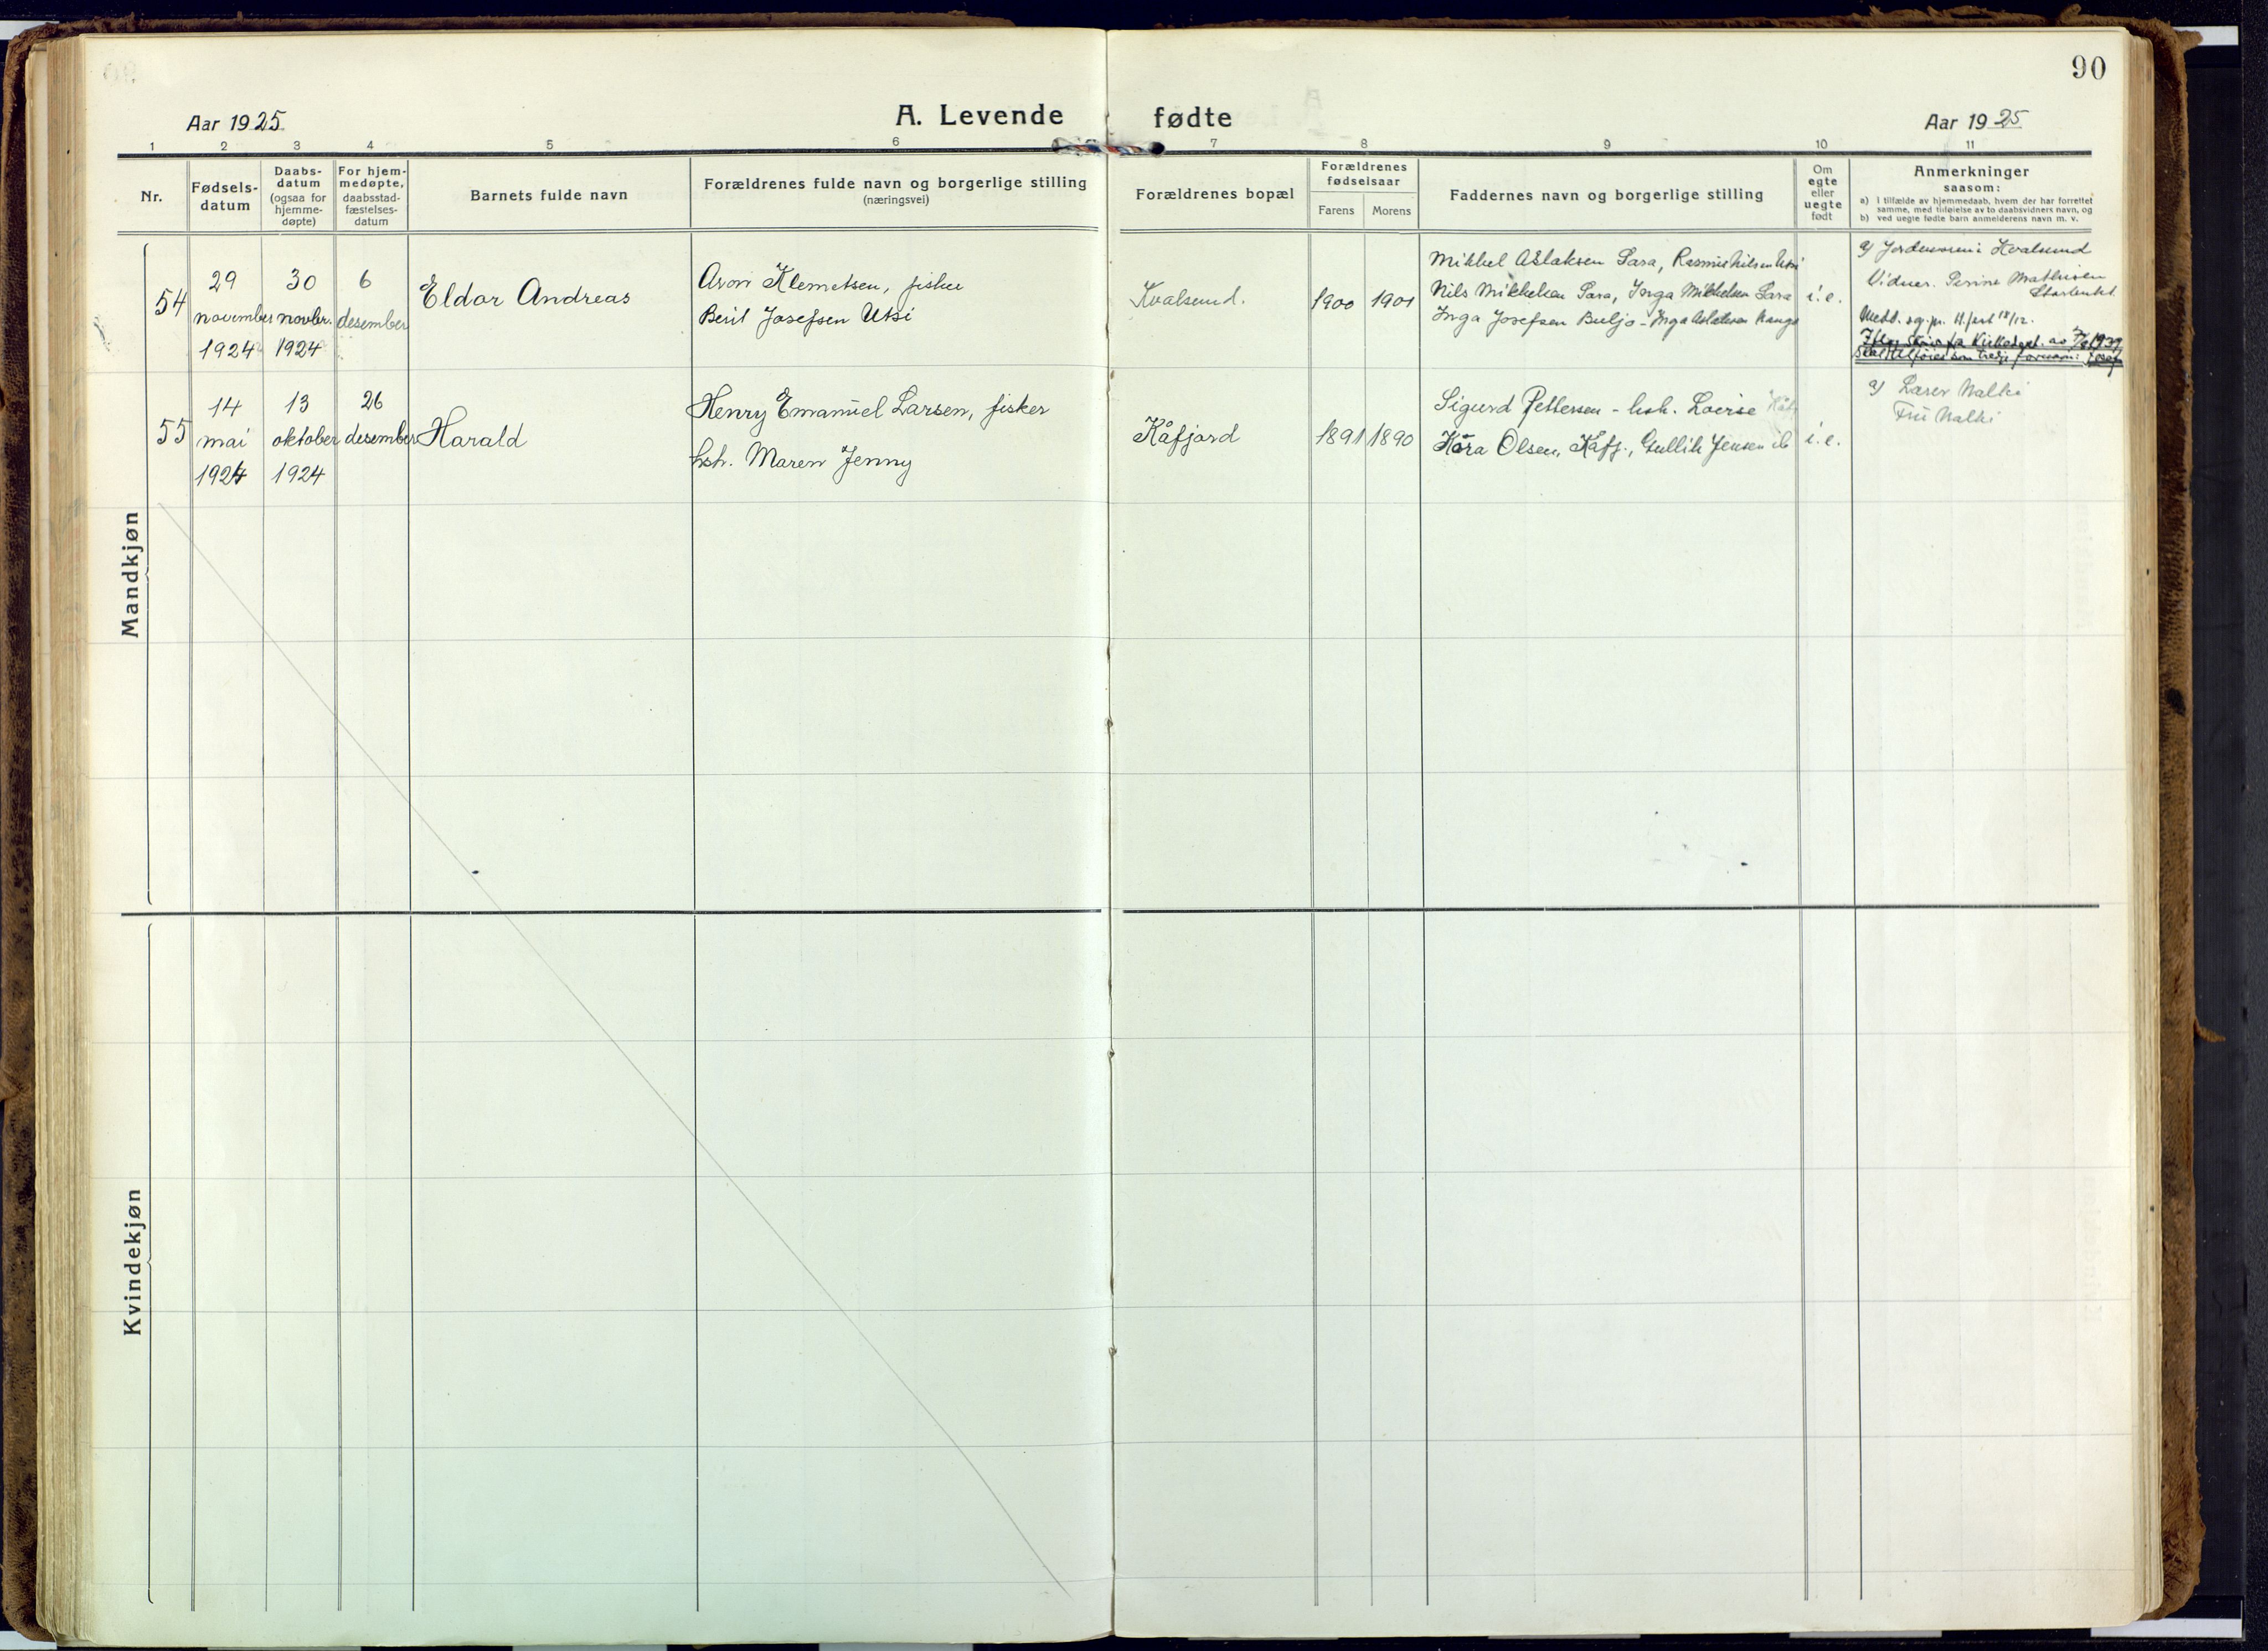 90
Aar 1925
A. Levende fødte
Aar 1925
1 2 3 4 5 6 7 8 9 10 11
Nr.
Fødsels-
datum
Daabs-
datum
(ogsaa for
hjemme-
døpte)
For hjem-
medøpte,
daabsstad-
fæstelses-
datum
Barnets fulde navn
Forældrenes fulde navn og borgerlige stilling
(næringsvei)
Forældrenes bopæl
Forældrenes
fødselsaar
Farens Morens
Faddernes navn og borgerlige stilling
Om
egte
eller
uegte
født
Anmerkninger
saasom:
a) I tilfælde av hjemmedaab, hvem der har forrettet
samme, med tilføielse av to daabsvidners navn, og
b) ved uegte fødte barn anmelderens navn m. v.
Mandkjøn
54
29
november
1924
30
novbr.
1924
6
desember
Eldor Andreas
Aron Klemetsen, fisker
Berit Josefsen Utsi
Kvalsund.
1900
1901
Mikkel Aslaksen Sara, Rasmus Nilsen Utsi
Nils Mikkelsen Sara, Inga Mikkelsen Sara
Inga Josefsen Buljo - Inga Aslaksen
i. e.
a) Jordmoren i Kvalsund
Vidner. Perine Mathisen
Medd. sg.pr. H.fest 18/12.
Kirkedept. av 1939
skal tilføies som tredje fornavn: Josef
55
14
mai
1924
13
oktober
1924
26
desember
Harald
Henry Emanuel Larsen, fisker
hsh. Maren Jenny
Kåfjord
1891
1890
Sigurd Pettersen - hsh. Lovise Kåfj
Kåra Olsen, Kåfj., Gullik Jensen ib
i. e.
a) Lærer Nalki
Fru Nalki
Kvindekjøn